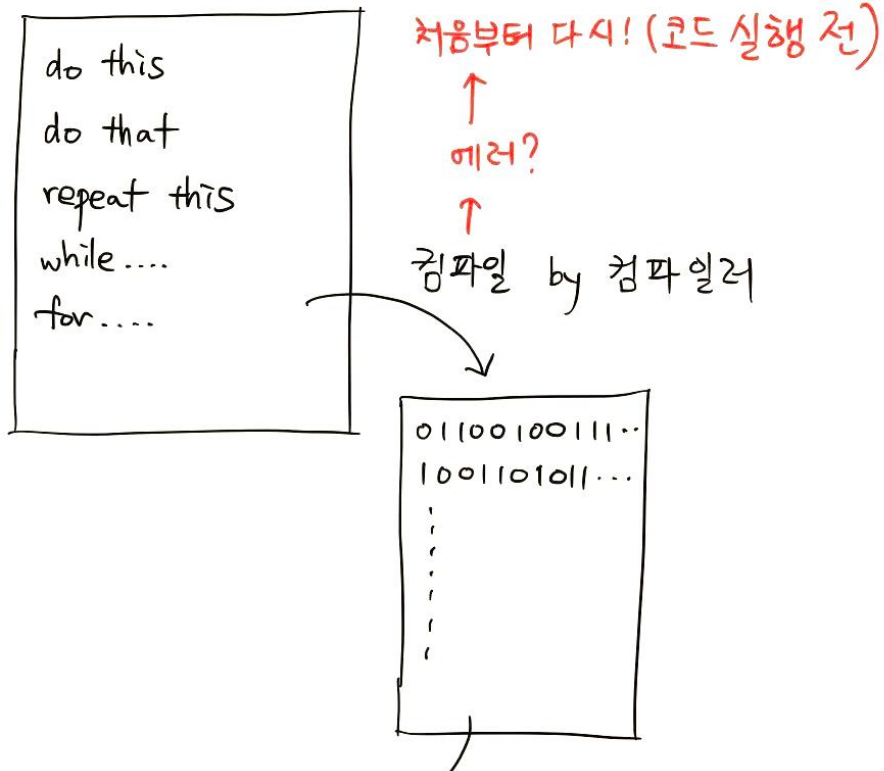 do this
do that
repeat this
while....
for....
처음부터 다시! (코드 실행 전)
에러?
컴파일 by 컴파일러
01100100111..
1001101011...